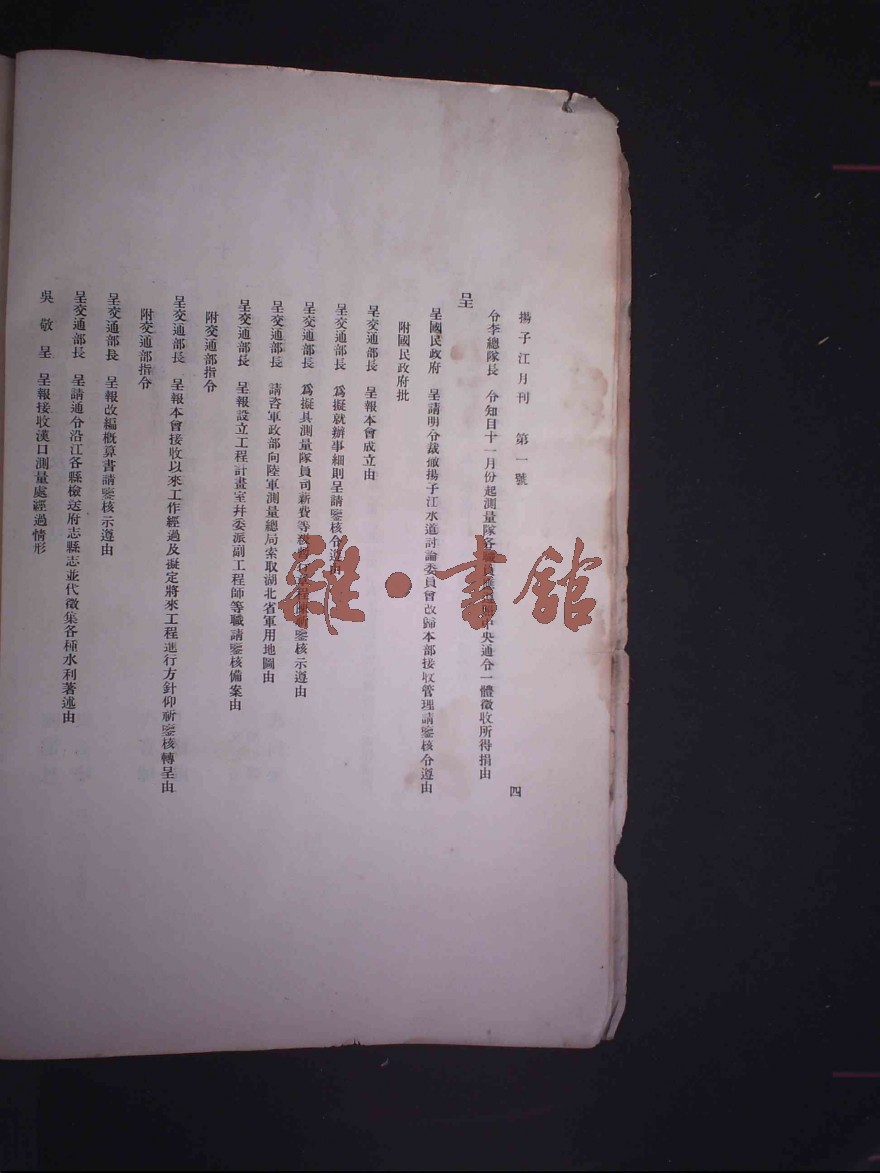 揚子江月刊 第一號 四
令李總隊長 令知自十一月份起測量隊各職員 中央通令一體徵收所得捐由
呈
呈國民政府 呈請明令裁撤揚子江水道討論委員會改歸本部接收管理請鑒核令遵由
附國民政府批
呈交通部長 呈報本會成立由
呈交通部長 爲擬就辦事細則呈請鑒核令遵由
呈交通部長 爲擬具測量隊員司薪費等級暫行章程 鑒核示遵由
呈交通部長 請咨軍政部向陸軍測量總局索取湖北省軍用地圖由
呈交通部長 呈報設立工程計畫室幷委派副工程師等職請鑒核備案由
附交通部指令
呈交通部長 呈報本會接收以來工作經過及擬定將來工程進行方針仰祈鑒核轉呈由
附交通部指令
呈交通部長 呈報改編概算書請鑒核示遵由
呈交通部長 呈請通令沿江各縣檢送府志縣志並代徵集各種水利著述由
吳敬呈 呈報接收漢口測量處經過情形
雜·書館